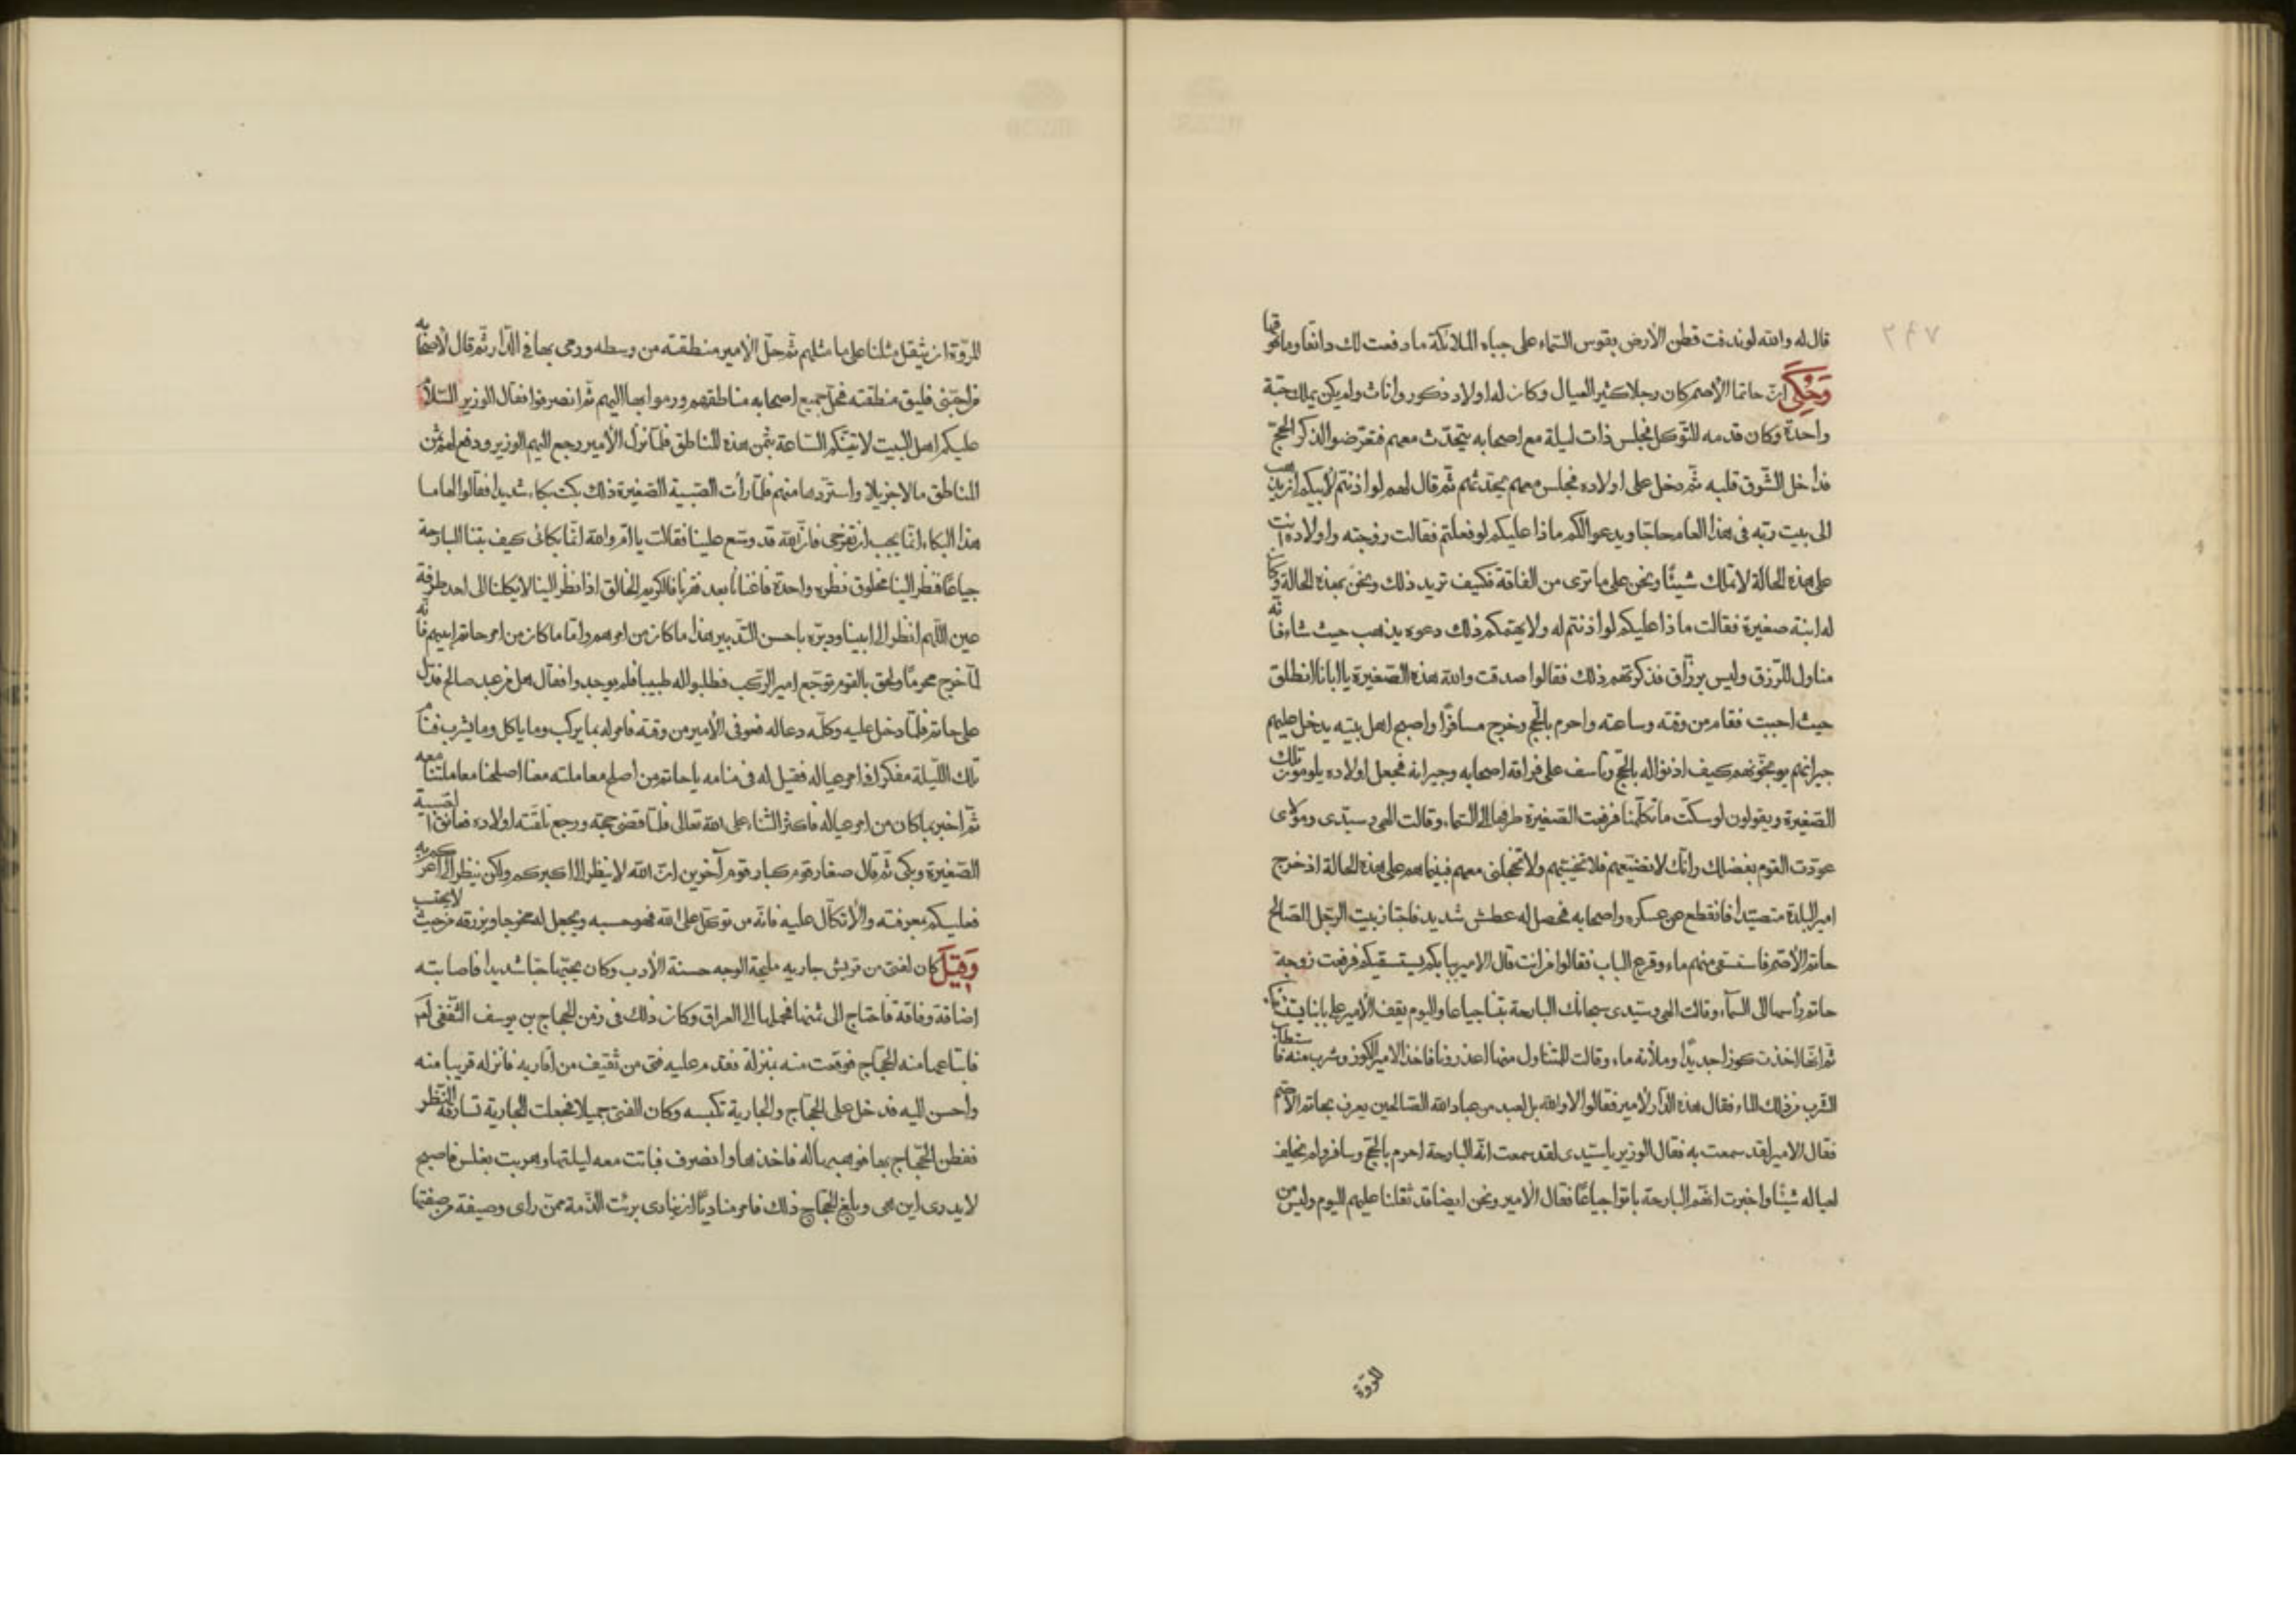 ٢٩٧
قال له والله لو ندفت قطن الأرض بقوس السّماء على جباه الملائكة ما دفعت لك دانقا وما فوقها
وَحُكِيَ انّ حاتما الأصم كان رجلا كثير العيال وكان له اولاد ذكور واناث ولم يكن يملك حبّة
واحدة وكان قدمه التّوكل فجلس ذات ليلة مع اصحابه يتحدّث معهم فتعرّضوا لذكر الحجّ
فداخل الشّوق قلبه ثم دخل على اولاده فجلس معهم يحدّثهم ثم قال لهم لو اذنتم لأبيكم ان يذهب
الى بيت ربّه فى هذا العام حاجّا ويدعو لكم ماذا عليكم لو فعلتم فقالت زوجته واولاده انت
على هذه الحالة لا تملك شيئًا ونحن على ما ترى من الفاقة فكيف تريد ذلك ونحن بهذه الحالة وكان
له ابنة صغيرة فقالت ماذا عليكم لو اذنتم له ولا يهمّكم ذلك دعوه يذهب حيث شاء فانّه
مناول للرّزق وليس برزّاق فذكرتهم ذلك فقالوا صدقت والله هذه الصّغيرة يا ابانا انطلق
حيث احببت فقام من وقته وساعته واحرم بالحجّ وخرج مسافرًا واصبح اهل بيته يدخل عليهم
جيرانهم يوبّخونهم كيف اذنوا له بالحجّ وتأسف على فراقه اصحابه وجيرانه فجعل اولاده يلومون تلك
الصّغيرة ويقولون لو سكتّ ما تكلّمنا فرفعت الصّغيرة طرفها الى السّماء وقالت الهى وسيّدى ومولاى
عوّدت القوم بفضلك وانّك لا تضيّعهم فلا تخيّبهم ولا تخجلنى معهم فبينما هم على هذه الحالة اذ خرج
امير البلدة متصيّدا فانقطع عن عسكره واصحابه فحصل له عطش شديد فاجتاز ببيت الرّجل الصّالح
حاتم الأصمّ فاستسقى منهم ماء وقرع الباب فقالوا من انت قال الامير ببابكم يستسقيكم فرفعت زوجة
حاتم رأسها الى السّماء وقالت الهى وسيّدى سبحانك البارحة بتنا جياعا واليوم يقف الأمير على بابنا يستسقينا
ثم انّها اخذت كوزا جديدًا وملأته ماء وقالت للمتناول منها اعذرونا فاخذ الامير الكوز وشرب منه فاستطاب
الشّرب من ذلك الماء فقال هذه الدّار لأمير فقالوا لا والله بل لعبد من عباد الله الصّالحين يعرف بحاتم الأصم
فقال الامير لقد سمعت به فقال الوزير يا سيّدى لقد سمعت انّه البارحة احرم بالحجّ وسافر ولم يخلف
لعياله شيئًا واخبرت انّهم البارحة باتوا جياعًا فقال الأمير ونحن ايضا قد ثقلنا عليهم اليوم وليس من
المروّة
المروّة ان يثقل مثلنا على ما مثلهم ثم حلّ الأمير منطقته من وسطه ورمى بها فى الدّار ثم قال لأصحابه
من احبّنى فليلق منطقته فحلّ جميع اصحابه مناطقهم ورموا بها اليهم ثم انصرفوا فقال الوزير السّلام
عليكم اهل البيت لآتينّكم السّاعة بثمن هذه المناطق فلمّا نزل الأمير رجع اليهم الوزير ودفع لهم ثمن
المناطق مالا جزيلا واستردّها منهم فلمّا رأت الصّبية الصّغيرة ذلك بكت بكاء شديدا فقالوا لها ما
هذا البكاء انّما يجب ان تفرحى فانّ الله قد وسّع علينا فقالت يا امّ والله انّما بكائى كيف بتنا البارحة
جياعًا فنظر الينا مخلوق نظره واحدة فاغنانا بعد فقرنا فالكريم الخالق اذا نظر الينا لا يكلنا الى احد طرفة
عين اللّهم انظر الى ابينا ودبّره باحسن التّدبير هذا ما كان من امرهم وامّا ما كان من امر حاتم ابيهم فانّه
لمّا خرج محرمًا ولحق بالقوم توجّع امير الرّكب فطلبوا له طبيبا فلم يوجدوا فقال هل من عبد صالح فدلّ
على حاتم فلمّا دخل عليه وكلّه دعا له فعوفى الأمير من وقته فامر له بما يركب وما ياكل وما يشرب فنام
تلك اللّيلة مفكرا فى امر عياله فقيل له فى منامه يا حاتم من اصلح معاملته معنا اصلحنا معاملتنا معه
ثم اخبر بما كان من امر عياله فاكثر الثّناء على الله تعالى فلمّا قضى حجّه ورجع تلقّته اولاده فعانق الصبية
الصّغيرة وبكى ثم قال صغار قوم كبار قوم آخرين انّ الله لا ينظر الى اكبركم ولكن ينظر الى اعرفكم به
فعليكم بمعرفته والأتكّال عليه فانّه من توكّل على الله فهو حسبه ويجعل له مخرجا ويرزقه من حيث لا يحتسب
وَقِيلَ كان لفتى من قريش جاريه مليحة الوجه حسنة الأدب وكان يحبّها حبّا شديدا فاصابته
اضاقة وفاقة فاحتاج الى ثمنها فحملها الى العراق وكان ذلك فى زمن الحجاج بن يوسف الثّقفى
فابتاعها منه الحجّاج فوقعت منه بمنزلة فقدم عليه فتى من ثقيف من اقاربه فانزله قريبا منه
واحسن اليه فدخل على الحجّاج والجارية تكبسه وكان الفتى جميلا فجعلت الجارية تسارقه النّظر
ففطن الحجّاج بها فوهبها له فاخذها وانصرف فباتت معه ليلتها وهربت بغلس فاصبح
لا يدرى اين هى وبلغ الحجّاج ذلك فامر مناديًا ان ينادى برئت الذّمة ممّن راى وصيفة من صفتها